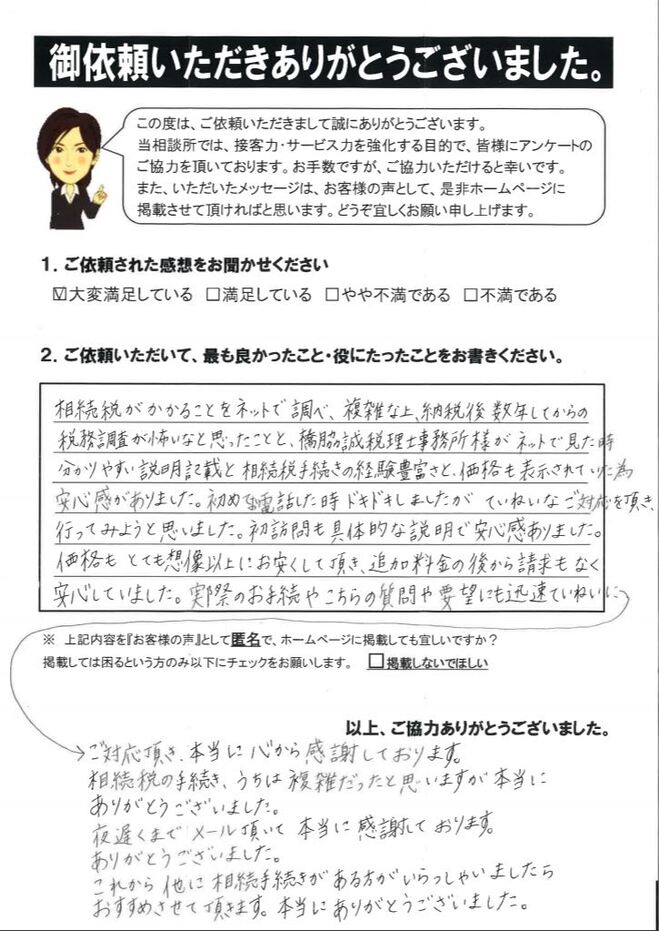 御依頼いただきありがとうございました。
この度は、ご依頼いただきまして誠にありがとうございます。
当相談所では、接客力・サービス力を強化する目的で、皆様にアンケートの
ご協力を頂いております。お手数ですが、ご協力いただけると幸いです。
また、いただいたメッセージは、お客様の声として、是非ホームページに
掲載させて頂ければと思います。どうぞ宜しくお願い申し上げます。
1. ご依頼された感想をお聞かせください
☑大変満足している □満足している □やや不満である □不満である
2. ご依頼いただいて、最も良かったこと・役にたったことをお書きください。
相続税がかかることをネットで調べ、複雑な上、納税後数年してからの
税務調査が怖いなと思ったことと、橋脇誠税理士事務所様がネットで見た時
分かりやすい説明記載と相続税手続きの経験豊富さと、価格も表示されていた為
安心感がありました。初めな電話した時ドキドキしましたがていねいなご対応を頂き、
行ってみようと思いました。初訪問も具体的な説明で安心感ありました。
価格もとても想像以上にお安くして頂き、追加料金の後から請求もなく
安心していました。実際のお手続やこちらの質問や要望にも迅速ていねいに
※ 上記内容を『お客様の声』として匿名で、ホームページに掲載しても宜しいですか？
掲載しては困るという方のみ以下にチェックをお願いします。 □掲載しないでほしい
以上、ご協力ありがとうございました。
→ご対応頂き、本当に心から感謝しております。
相続税の手続き、うちは複雑だったと思いますが本当に
ありがとうございました。
夜遅くまでメール頂いて本当に感謝しております。
ありがとうございました。
これから他に相続手続きがある方がいらっしゃいましたら
おすすめさせて頂きます。本当にありがとうございました。